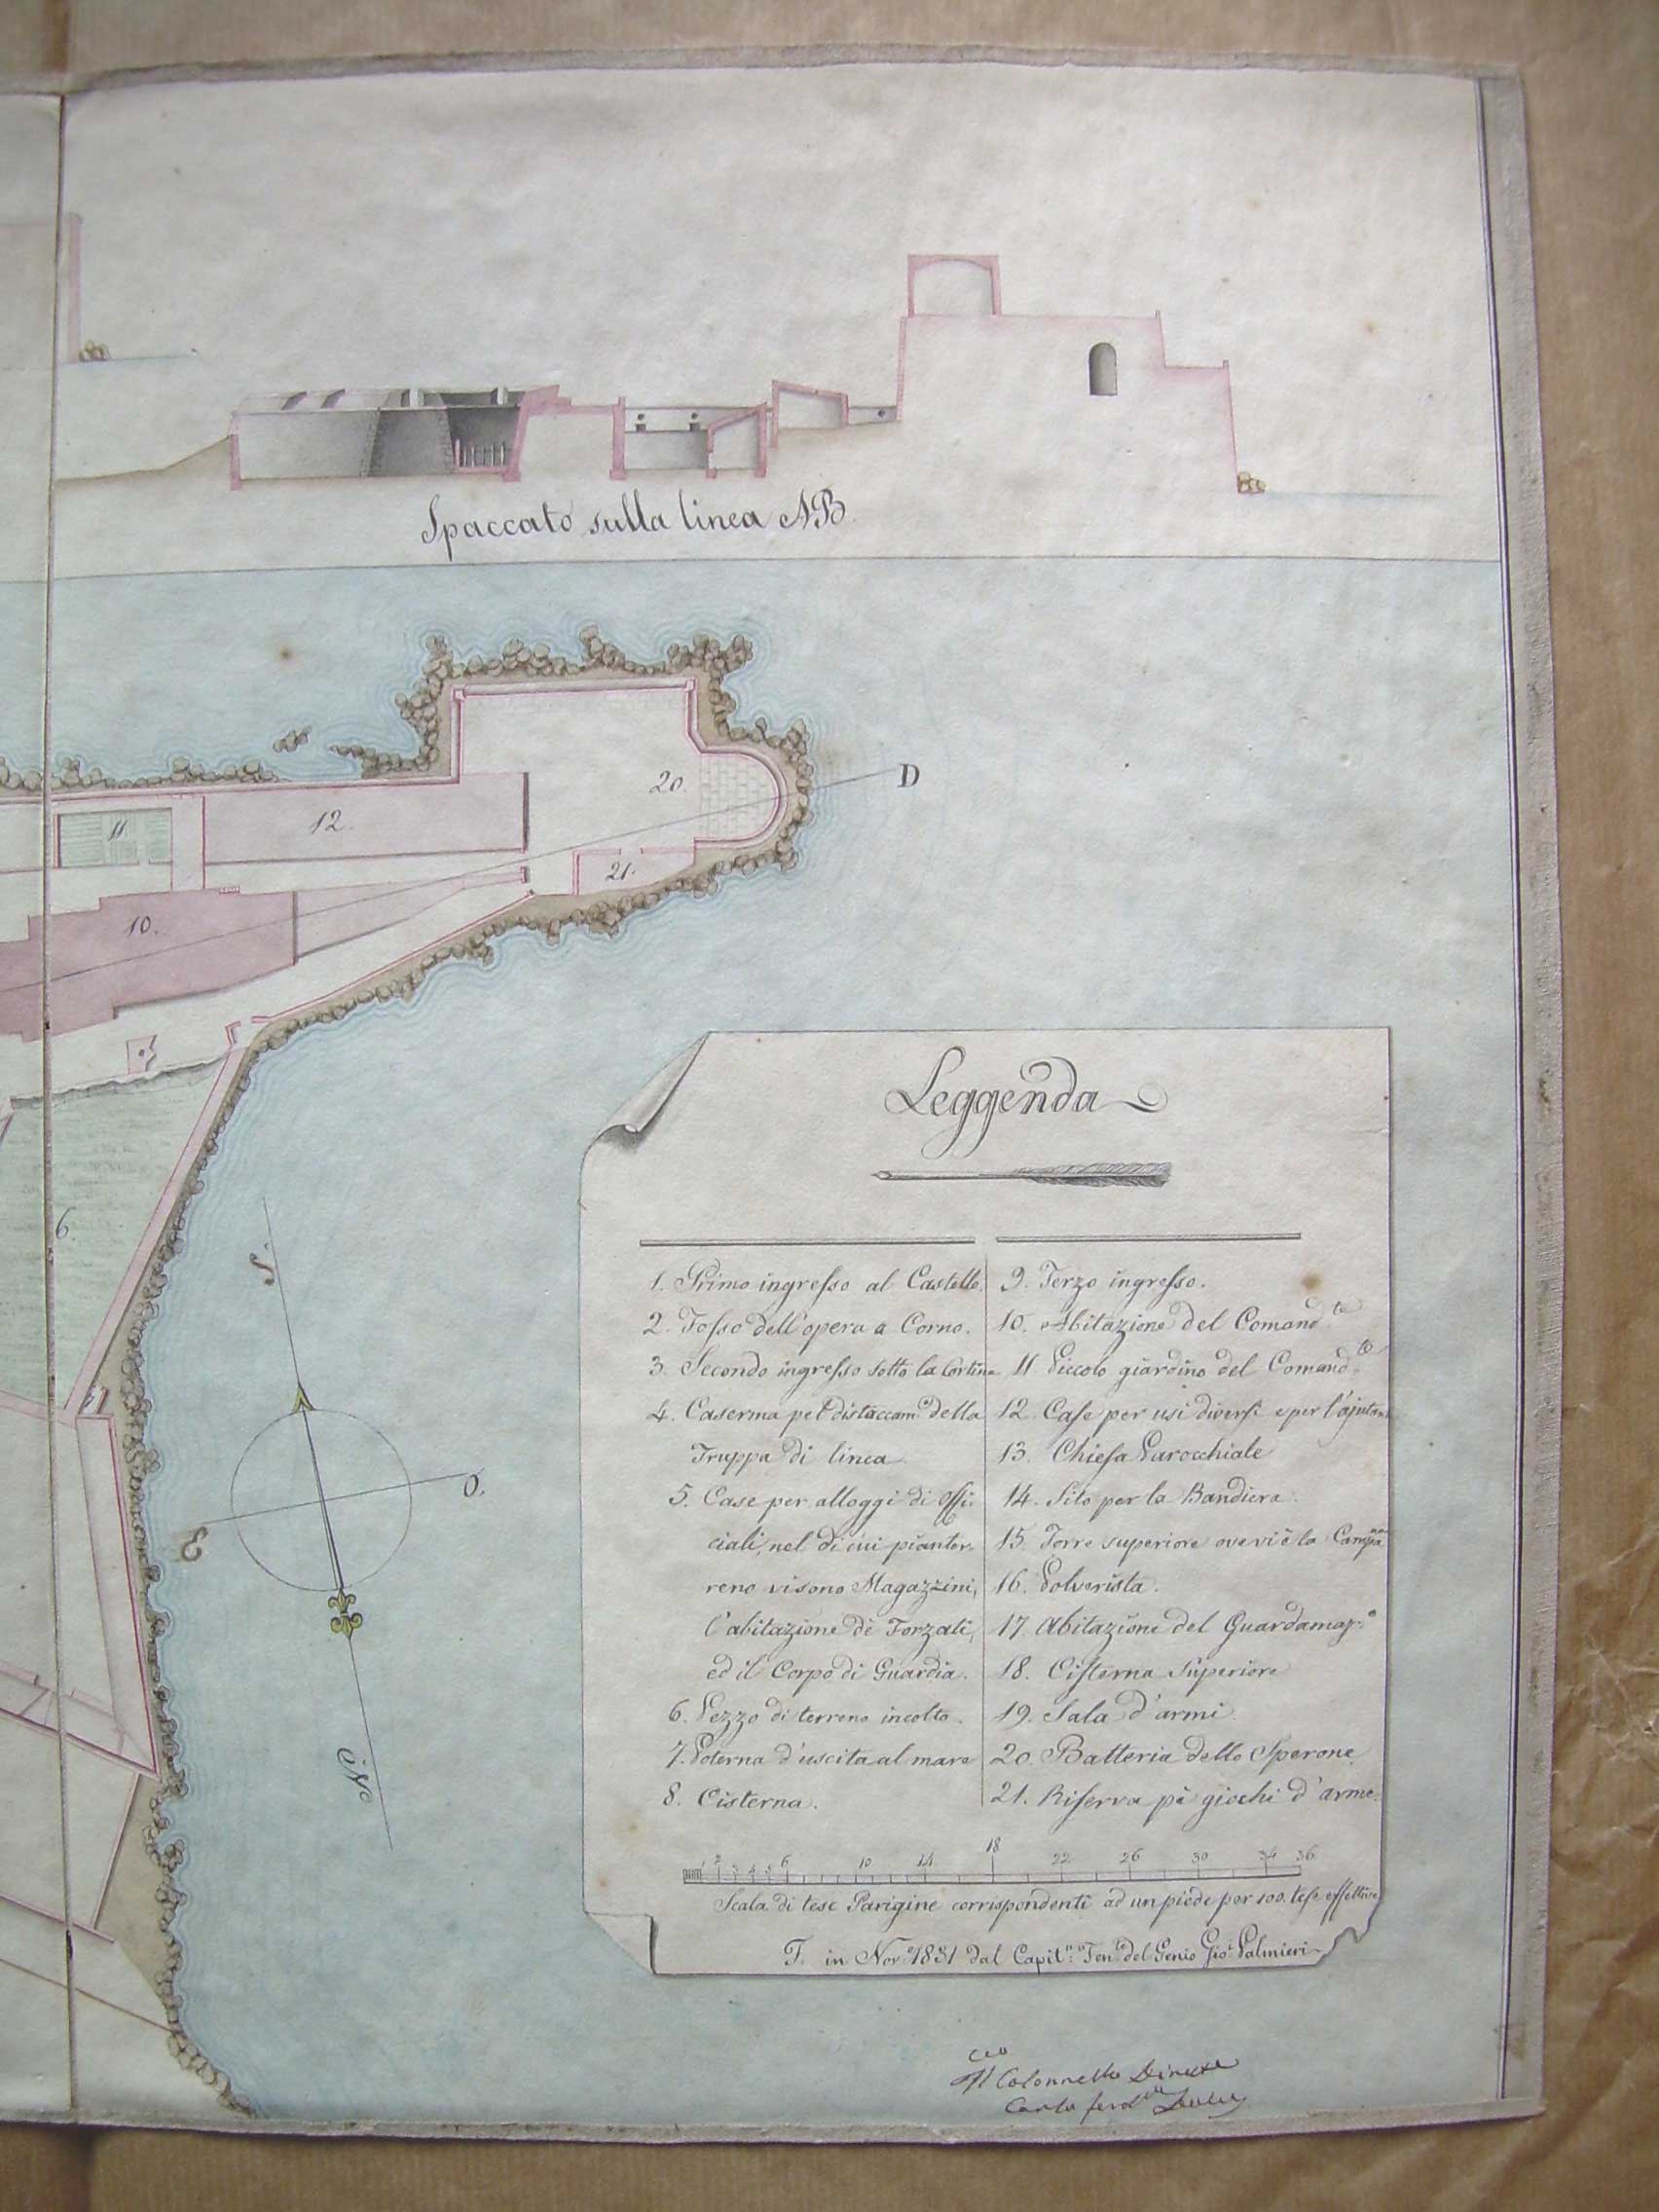 Spaccato sulla linea AB.
D
20.
11.
12.
21.
10.
6.
S.
O.
E
N
Leggenda
1. Primo ingresso al Castello.
2. Fosso dell'opera a Corno.
3. Secondo ingresso sotto la Cortina
4. Caserma pel distaccam.º della
Truppa di linea.
5. Case per alloggi di Offi-
ciali, nel di cui pianter-
reno vi sono Magazzini,
l'abitazione de Forzati,
ed il Corpo di Guardia.
6. Pezzo di terreno incolto.
7. Poterna d'uscita al mare
8. Cisterna.
9. Terzo ingresso.
10. Abitazione del Comand.te
11. Piccolo giardino del Comand.te
12. Case per usi diversi e per l'ajutan
13. Chiesa Parocchiale
14. Sito per la Bandiera.
15. Torre superiore ove vi è la Camp.na
16. Polverista.
17. Abitazione del Guardamag.º
18. Cisterna Superiore
19. Sala d'armi.
20. Batteria dello Sperone.
21. Riserva pei giochi d'arme.
1 2 3 4 5 6 10 14 18 22 26 30 34 36
Scala di tese Parigine corrispondenti ad un piede per 100. tese effettive
F. in Nov.e 1831 dal Capit.n Ten.te del Genio Gio: Palmieri
Il Colonnello Dirett.e
Carlo ferd.